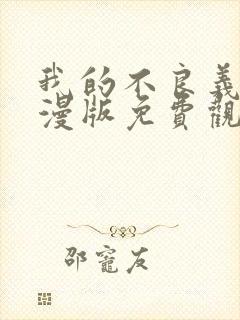 我的不良義
漫版免費觀
邵寵友